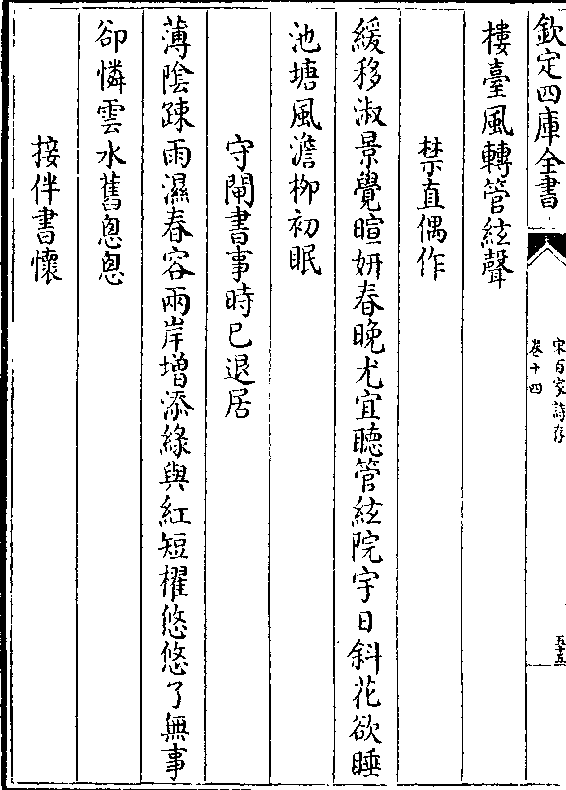 欽定四庫全書
宋百家詩存
卷十四
五十五
樓臺風轉管絃聲
禁直偶作
緩移淑景覺暄妍春晚尤宜聽管絃院宇日斜花欲睡
池塘風澹柳初眠
守閘書事時已退居
薄陰疎雨濕春容兩岸增添綠與紅短櫂悠悠了無事
卻憐雲水舊悤悤
接伴書懷